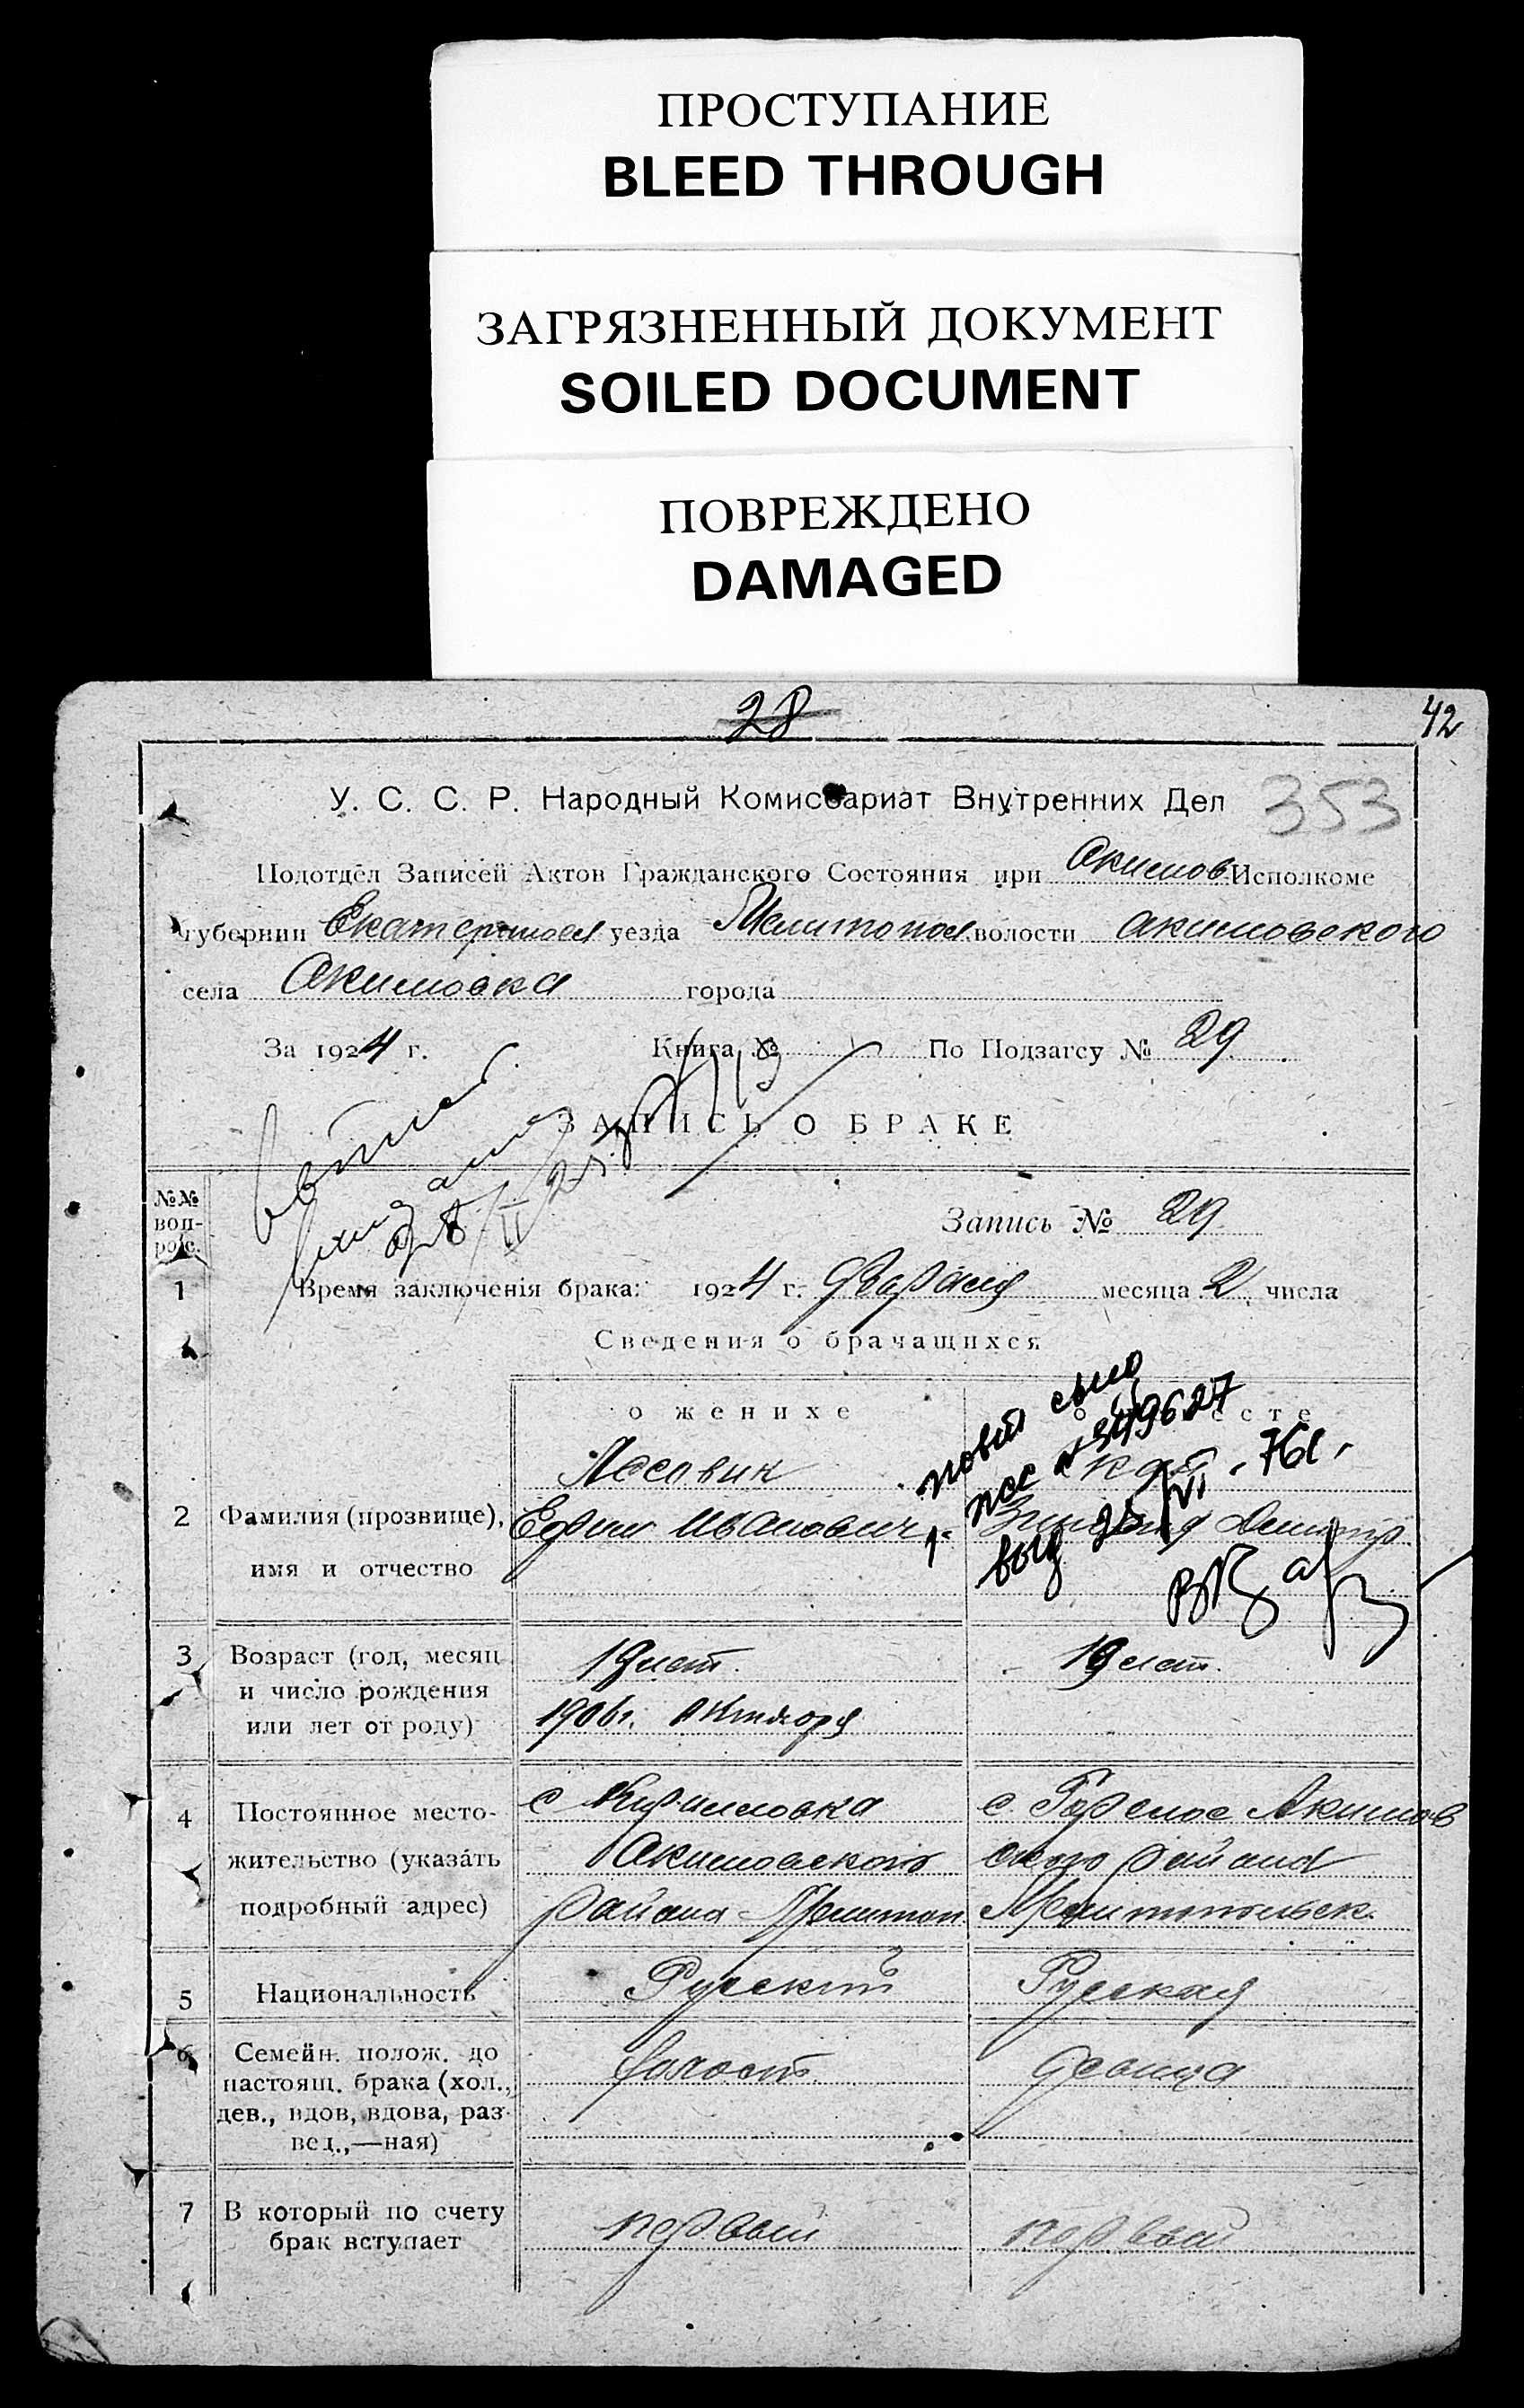 ПРОСТУПАНИЕ
BLEED THROUGH
ЗАГРЯЗНЕННЫЙ ДОКУМЕНТ
SOILED DOCUMENT
ПОВРЕЖДЕНО
DAMAGED
28
42
У. С. С. Р. Народный Комиссариат Внутренних Дел
353
Подотдел Записей Актов Гражданского Состояния при Акимов Исполкоме
губернии Екатериносл уезда Мелитопол. волости акимовского
села Акимовка города
За 1924 г. Книга № По Подзагсу № 29
ЗАПИСЬ О БРАКЕ
№№ вопрос.
Запись № 29
1 Время заключенія брака: 1924 г. февраля месяца 2 числа
Сведения о брачащихся
о женихе
2 Фамилия (прозвище),
имя и отчество
Ефим Иванович
Дмитр
повт
349627
76г.
3 Возраст (год, месяц
и число рождения
или лет от роду)
19 лет.
1906г. Октября
19 лет.
4 Постоянное место-
жительство (указать
подробный адрес)
с Кирилловка
Акимовского
района Мелитоп
с. Горелое Акимов
ского района
Мелитопольск.
5 Национальность
Русский
Русская
6 Семейн. полож. до
настоящ. брака (хол.,
дев., вдов, вдова, раз-
вед.,—ная)
холост.
девица
7 В который по счету
брак вступает
первый
первый